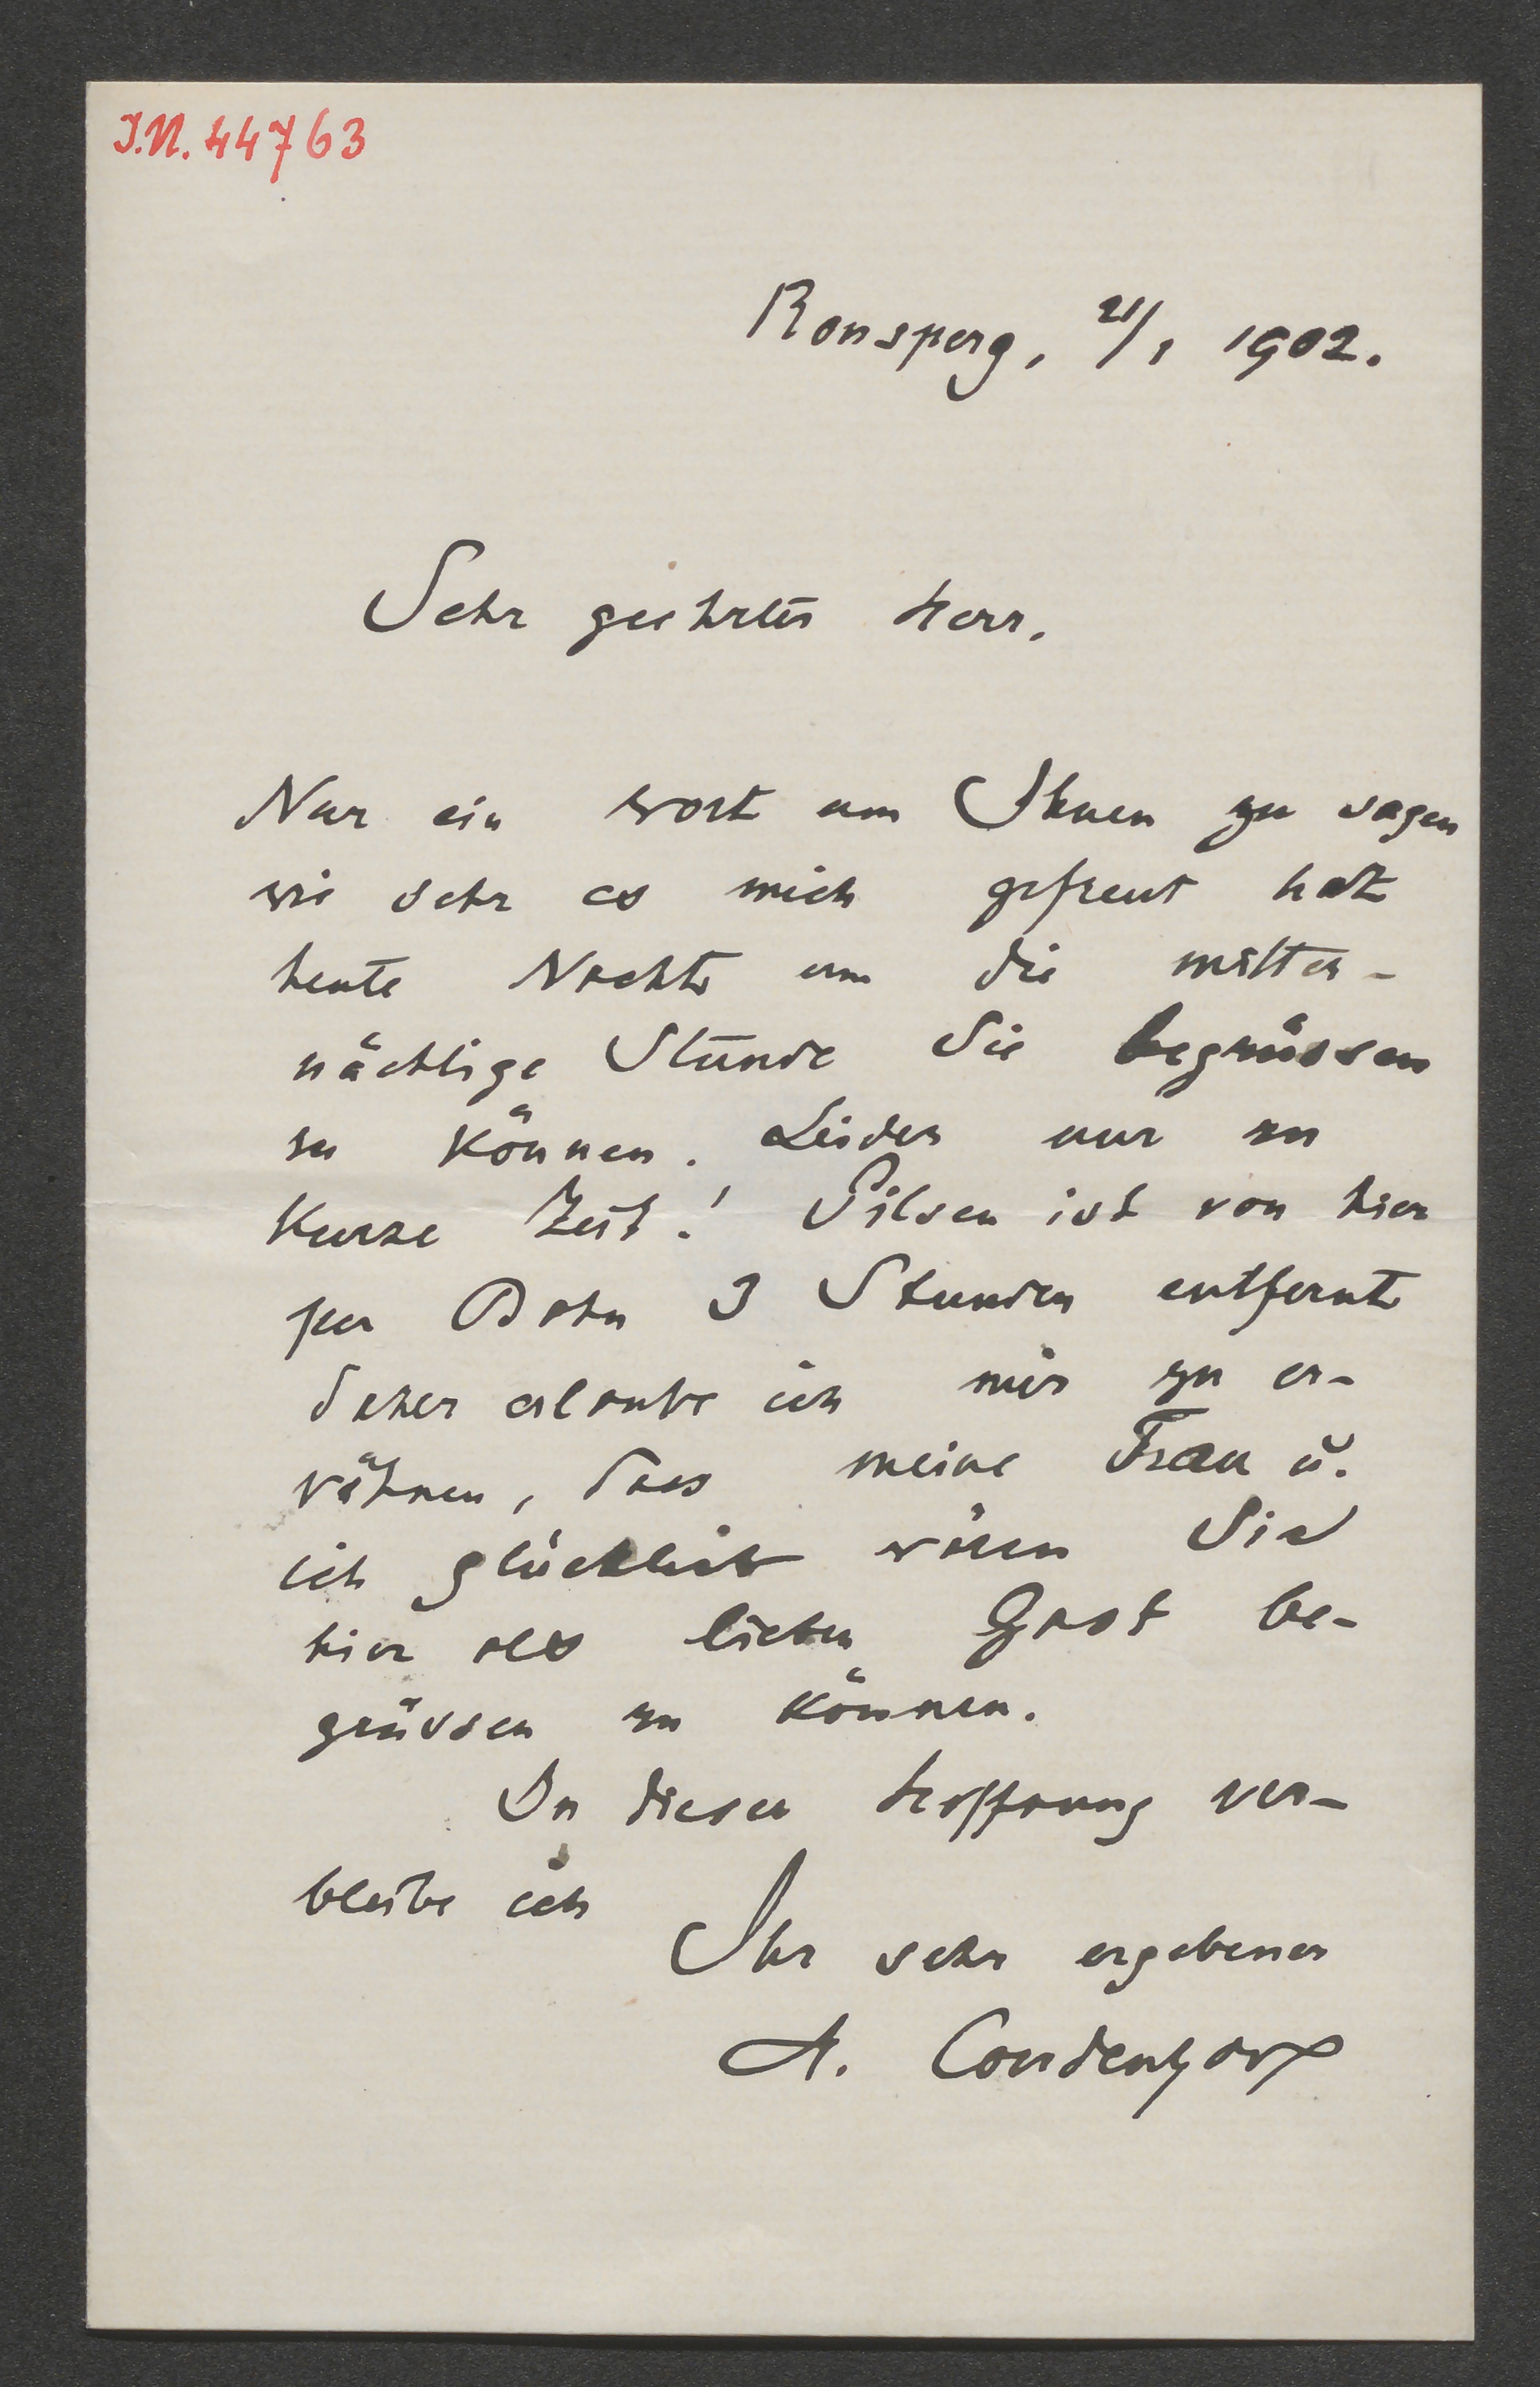 I.N. 44763
Ronsperg, 21/1 1902.
Sehr geehrter Herr,
Nur ein Wort um Ihnen zu sagen
wie sehr es mich gefreut hat
heute Nacht um die mitter-
nächtige Stunde Sie begrüssen
zu können. Leider nur zu
kurze Zeit! Pilsen ist von hier
per Bahn 3 Stunden entfernt
daher erlaube ich mir zu er-
wähnen, dass meine Frau u.
ich glücklich wären Sie
hier als lieben Gast be-
grüssen zu können.
In dieser Hoffnung ver-
bleibe ich
Ihr sehr ergebener
H. Coudenhove